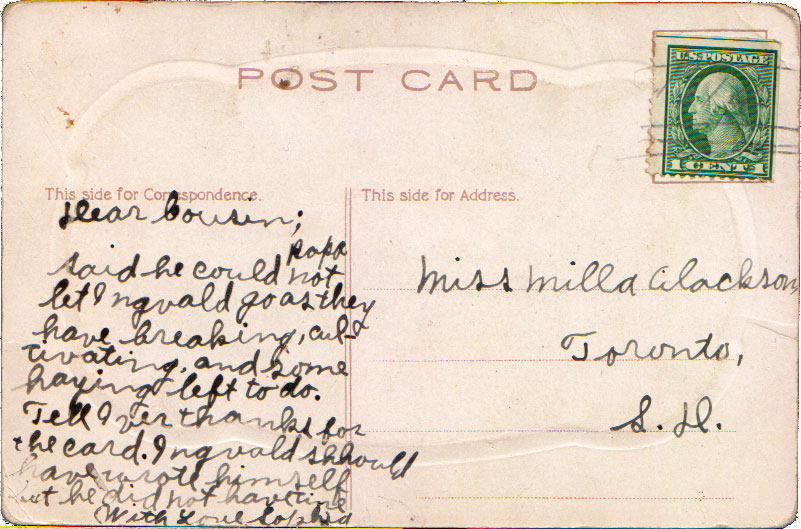 POST CARD
U.S. POSTAGE
1 CENT 1
This side for Correspondence.
This side for Address.
Dear Cousin;
Papa
said he could not
let Ingvald go as they
have breaking, cul-
tivating, and some
haying left to do.
Tell Iver thanks for
the card. Ingvald shhould
have wrote himself
but he did not have time
With Love Sophia
Miss Milla
Toronto,
S. D.